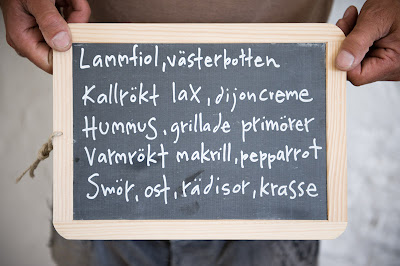 Lammfiol, västerbotten
Kallrökt lax, dijoncreme
Hummus, grillade primörer
Varmrökt makrill, pepparrot
Smör, ost, rädisor, krasse